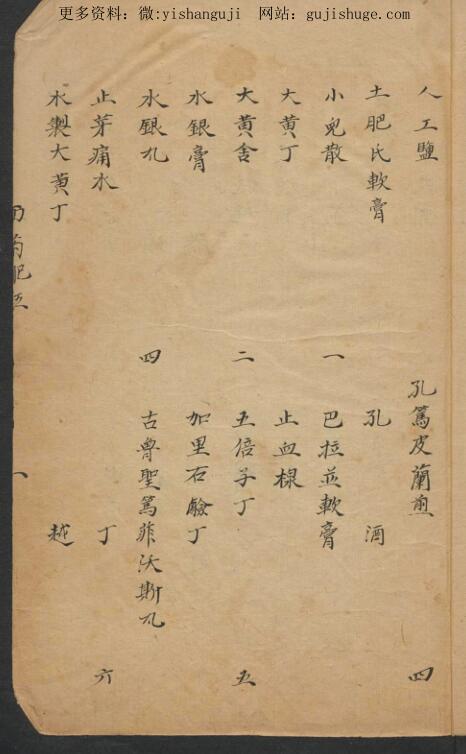 更多资料：微:yishanguji 网站：gujishuge.com
人工鹽 孔篤皮蘭煎 四
土肥氏軟膏 孔 酒
小兒散 一 巴拉並軟膏
大黃丁 止血
大黃舍 二 五倍子丁 五
水銀膏 加里石鹼丁
水銀丸 四 古魯聖篤菲沃斯丸
止芽痛水 丁 六
水製大黃丁 越